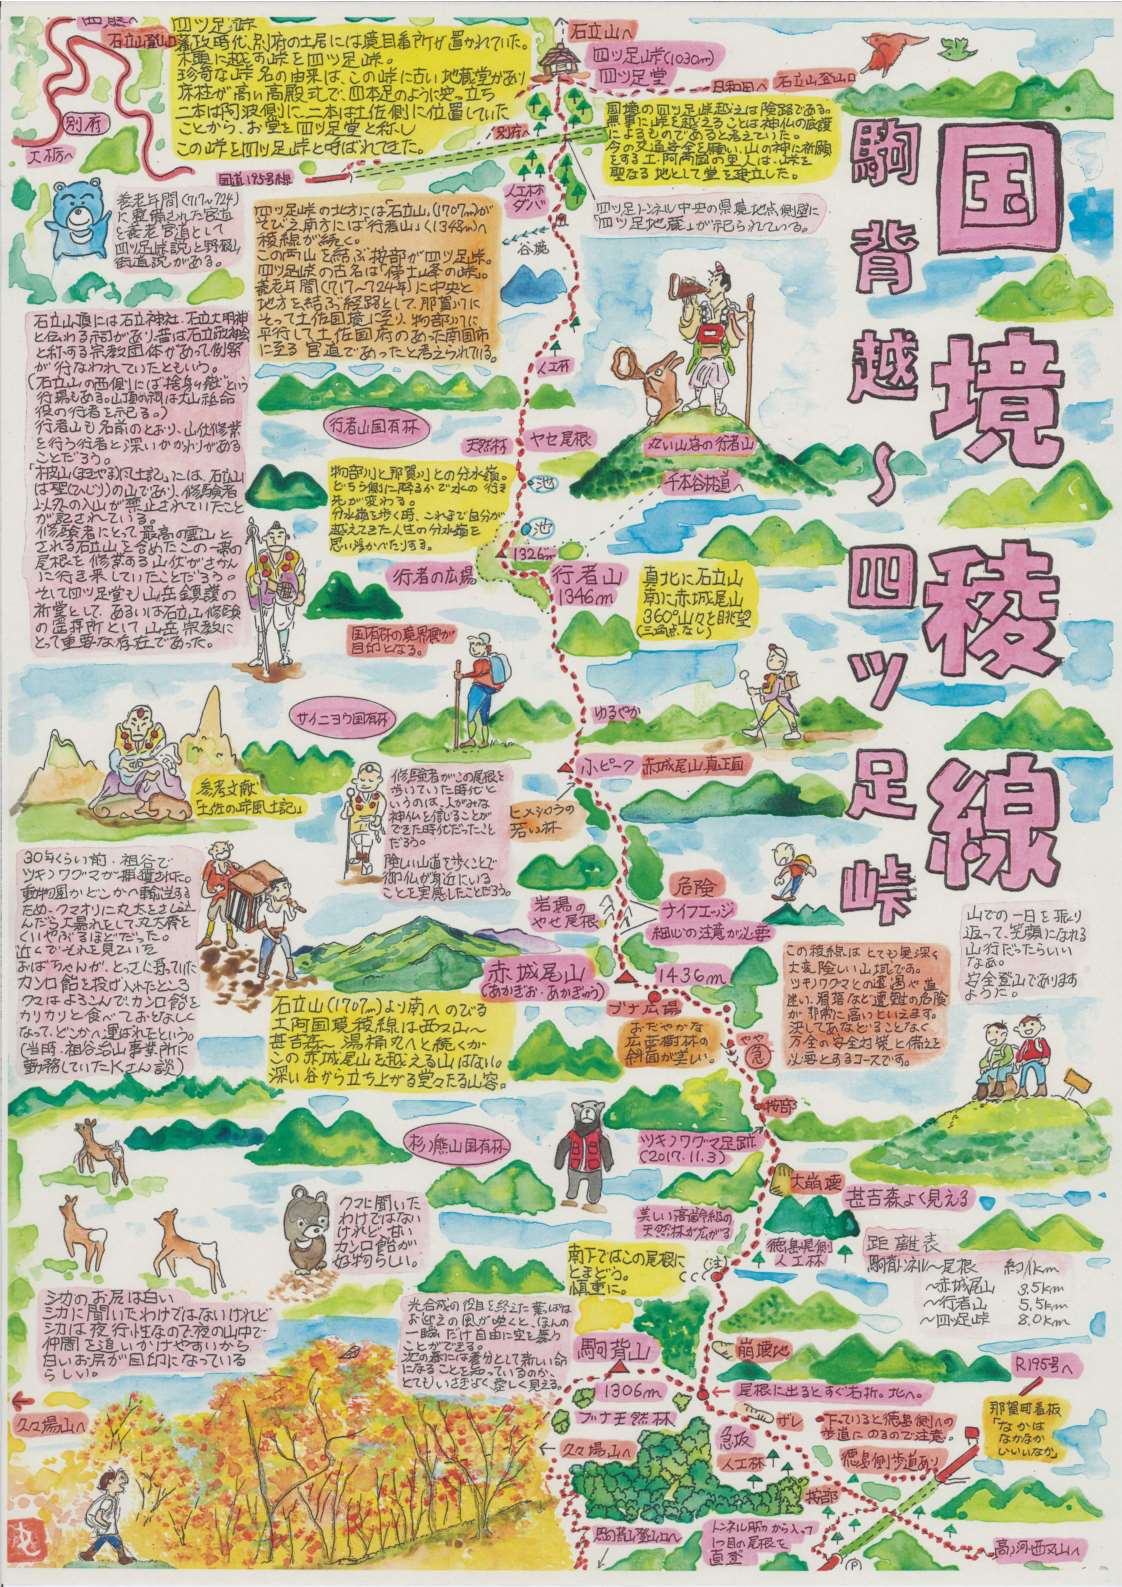 国境稜線
駒背越〜四ツ足峠
石立山へ
四ツ足峠(1030m)
四ツ足堂
石立山登山口
別府
大栃へ
四ツ足峠
藩政時代、別府の土居には境目番所が置かれていた。
木頭に越す峠を四ツ足峠。
珍奇な峠名の由来は、この峠に古い地蔵堂があり
床柱が高い高殿式で、四本足のように突っ立ち
二本は阿波側に、二本は土佐側に位置していた
ことから、お堂を四ツ足堂と称し
この峠を四ツ足峠と呼ばれてきた。
国道195号線
別府へ
国境の四ツ足峠越えは険路である。
無事に峠を越えることは神仏の庇護
によるものであると考えていた。
今の交通安全を願い、山の神に祈願
をする土・阿両国の里人は、峠を
聖なる地として堂を建立した。
四ツ足トンネル中央の県境地点側壁に
「四ツ足地蔵」が祀られている。
人工林
養老年間(717〜724)
に整備された官道
を養老官道として
四ツ足峠説と野根山
街道説がある。
四ツ足峠の北方には「石立山」(1707m)が
そびえ、南方には「行者山」(1348m)へ
稜線が続く。
この両山を結ぶ按部が四ツ足峠。
養老年間(717〜724年)に中央と
地方を結ぶ経路として、那賀川に
そって土佐国境に至り、物部川に
平行して土佐国府のあった南国市
に至る官道であったと考えられている。
人工林
石立山頂には石立神社、石立大明神
と伝わる祠があり、昔は石立敬神会
と称する宗教団体があって例祭
が行なわれていたともいう。
行者山も名前のとおり、山伏修業
を行う行者と深いかかわりがある
ことだろう。
は聖(ひじり)の山であり、修験者
以外の入山が禁止されていたこと
が記されている。
修験者にとって最高の霊山と
される石立山を含めたこの一帯の
尾根を修業する山伏がさかん
に行き来していたことだろう。
そして四ツ足堂も山岳鎮護の
祈堂として、あるいは石立山修験
の遥拝所として山岳宗教に
とって重要な存在であった。
行者山国有林
天然林
ヤセ尾根
丸い山容の行者山
千本谷林道へ
物部川と那賀川との分水嶺。
どちら側に降るかで水の行き
先が変わる。
分水嶺を歩く時、これまで自分が
越えてきた人生の分水嶺を
思い浮かべたりする。
池
池
1326m
行者の広場
行者山
1346m
真北に石立山
南に赤城尾山
360°山々を眺望
(三角点なし)
国有林の境界標が
目印となる。
サイニョウ国有林
ゆるやか
小ピーク
赤城尾山真正面
参考文献
「土佐の峠風土記」
修験者がこの尾根を
歩いていた時代と
いうのは、人がみな
神仏を信じることが
できた時代だったこと
だろう。
険しい山道を歩くことで
御仏が身近にいる
ことを実感したことだろう。
ヒメシャラの
若い林
30年くらい前、祖谷で
ツキノワグマが捕獲された。
動物園かどこかへ輸送する
ため、クマオリに丸太をさし込
んだら大暴れをして、丸太棒を
くいやぶるほどだった。
近くでそれを見ていた
おばちゃんが、とっさに持っていた
カンロ飴を投げ入れたところ
クマはよろこんで、カンロ飴を
カリカリと食べておとなしく
なって、どこかへ運ばれたという。
(当時、祖谷治山事業所に
勤務していたKさん談)
岩場の
やせ尾根
危険
ナイフエッジ
細心の注意が必要
赤城尾山
(あかぎお・あかぎゅう)
1436m
ブナ広場
おだやかな
広葉樹林の
斜面が美しい。
石立山(1707m)より南へのびる
土阿国境稜線は西又山〜
甚吉森〜湯桶丸へと続くが
この赤城尾山を越える山はない。
深い谷から立ち上がる堂々たる山容。
この稜線はとても奥深く
大変険しい山域です。
ツキノワグマとの遭遇や道
迷い、滑落など遭難の危険
が非常に高いといえます。
決してあなどることなく
万全の安全対策と備えを
必要とするコースです。
山での一日を振り
返って、笑顔になれる
山行だったらいい
なあ。
安全登山であります
ように。
やや急
按部
杉ノ熊山国有林
ツキノワグマ足跡
(2017.11.3)
大崩壊
甚吉森よく見える
クマに聞いた
わけではない
けれど、甘い
カンロ飴が
好物らしい。
美しい高齢級の
天然林が広がる
徳島県側
人工林
南下ではこの尾根に
とまどう。
慎重に。
(注)
距離表
駒背トンネル〜尾根 約1km
〜赤城尾山 3.5km
〜行者山 5.5km
〜四ツ足峠 8.0km
シカのお尻は白い
シカに聞いたわけではないけれど
シカは夜行性なので、夜の山中で
仲間を追いかけやすいから
白いお尻が目印になっている
らしい。
光合成の役目を終えた葉っぱは
お迎えの風が吹くと、ほんの
一瞬だけ自由に空を舞う
ことができる。
次の春には養分として新しい命
になることを知っているのか、
とてもいさぎよく、愛しく見える。
駒背山
1306m
ブナ天然林
久々場山へ
久々場山へ
崩壊地
尾根に出るとすぐ右折。北へ。
ザレ
急坂
人工林
下っていると徳島側への
歩道にのるので注意。
徳島側歩道あり
R195号へ
那賀町看板
「なかは
なかなか
いいいなか」
按部
駒背山登山口へ
トンネル脇から入って
1つ目の尾根を
直登
P